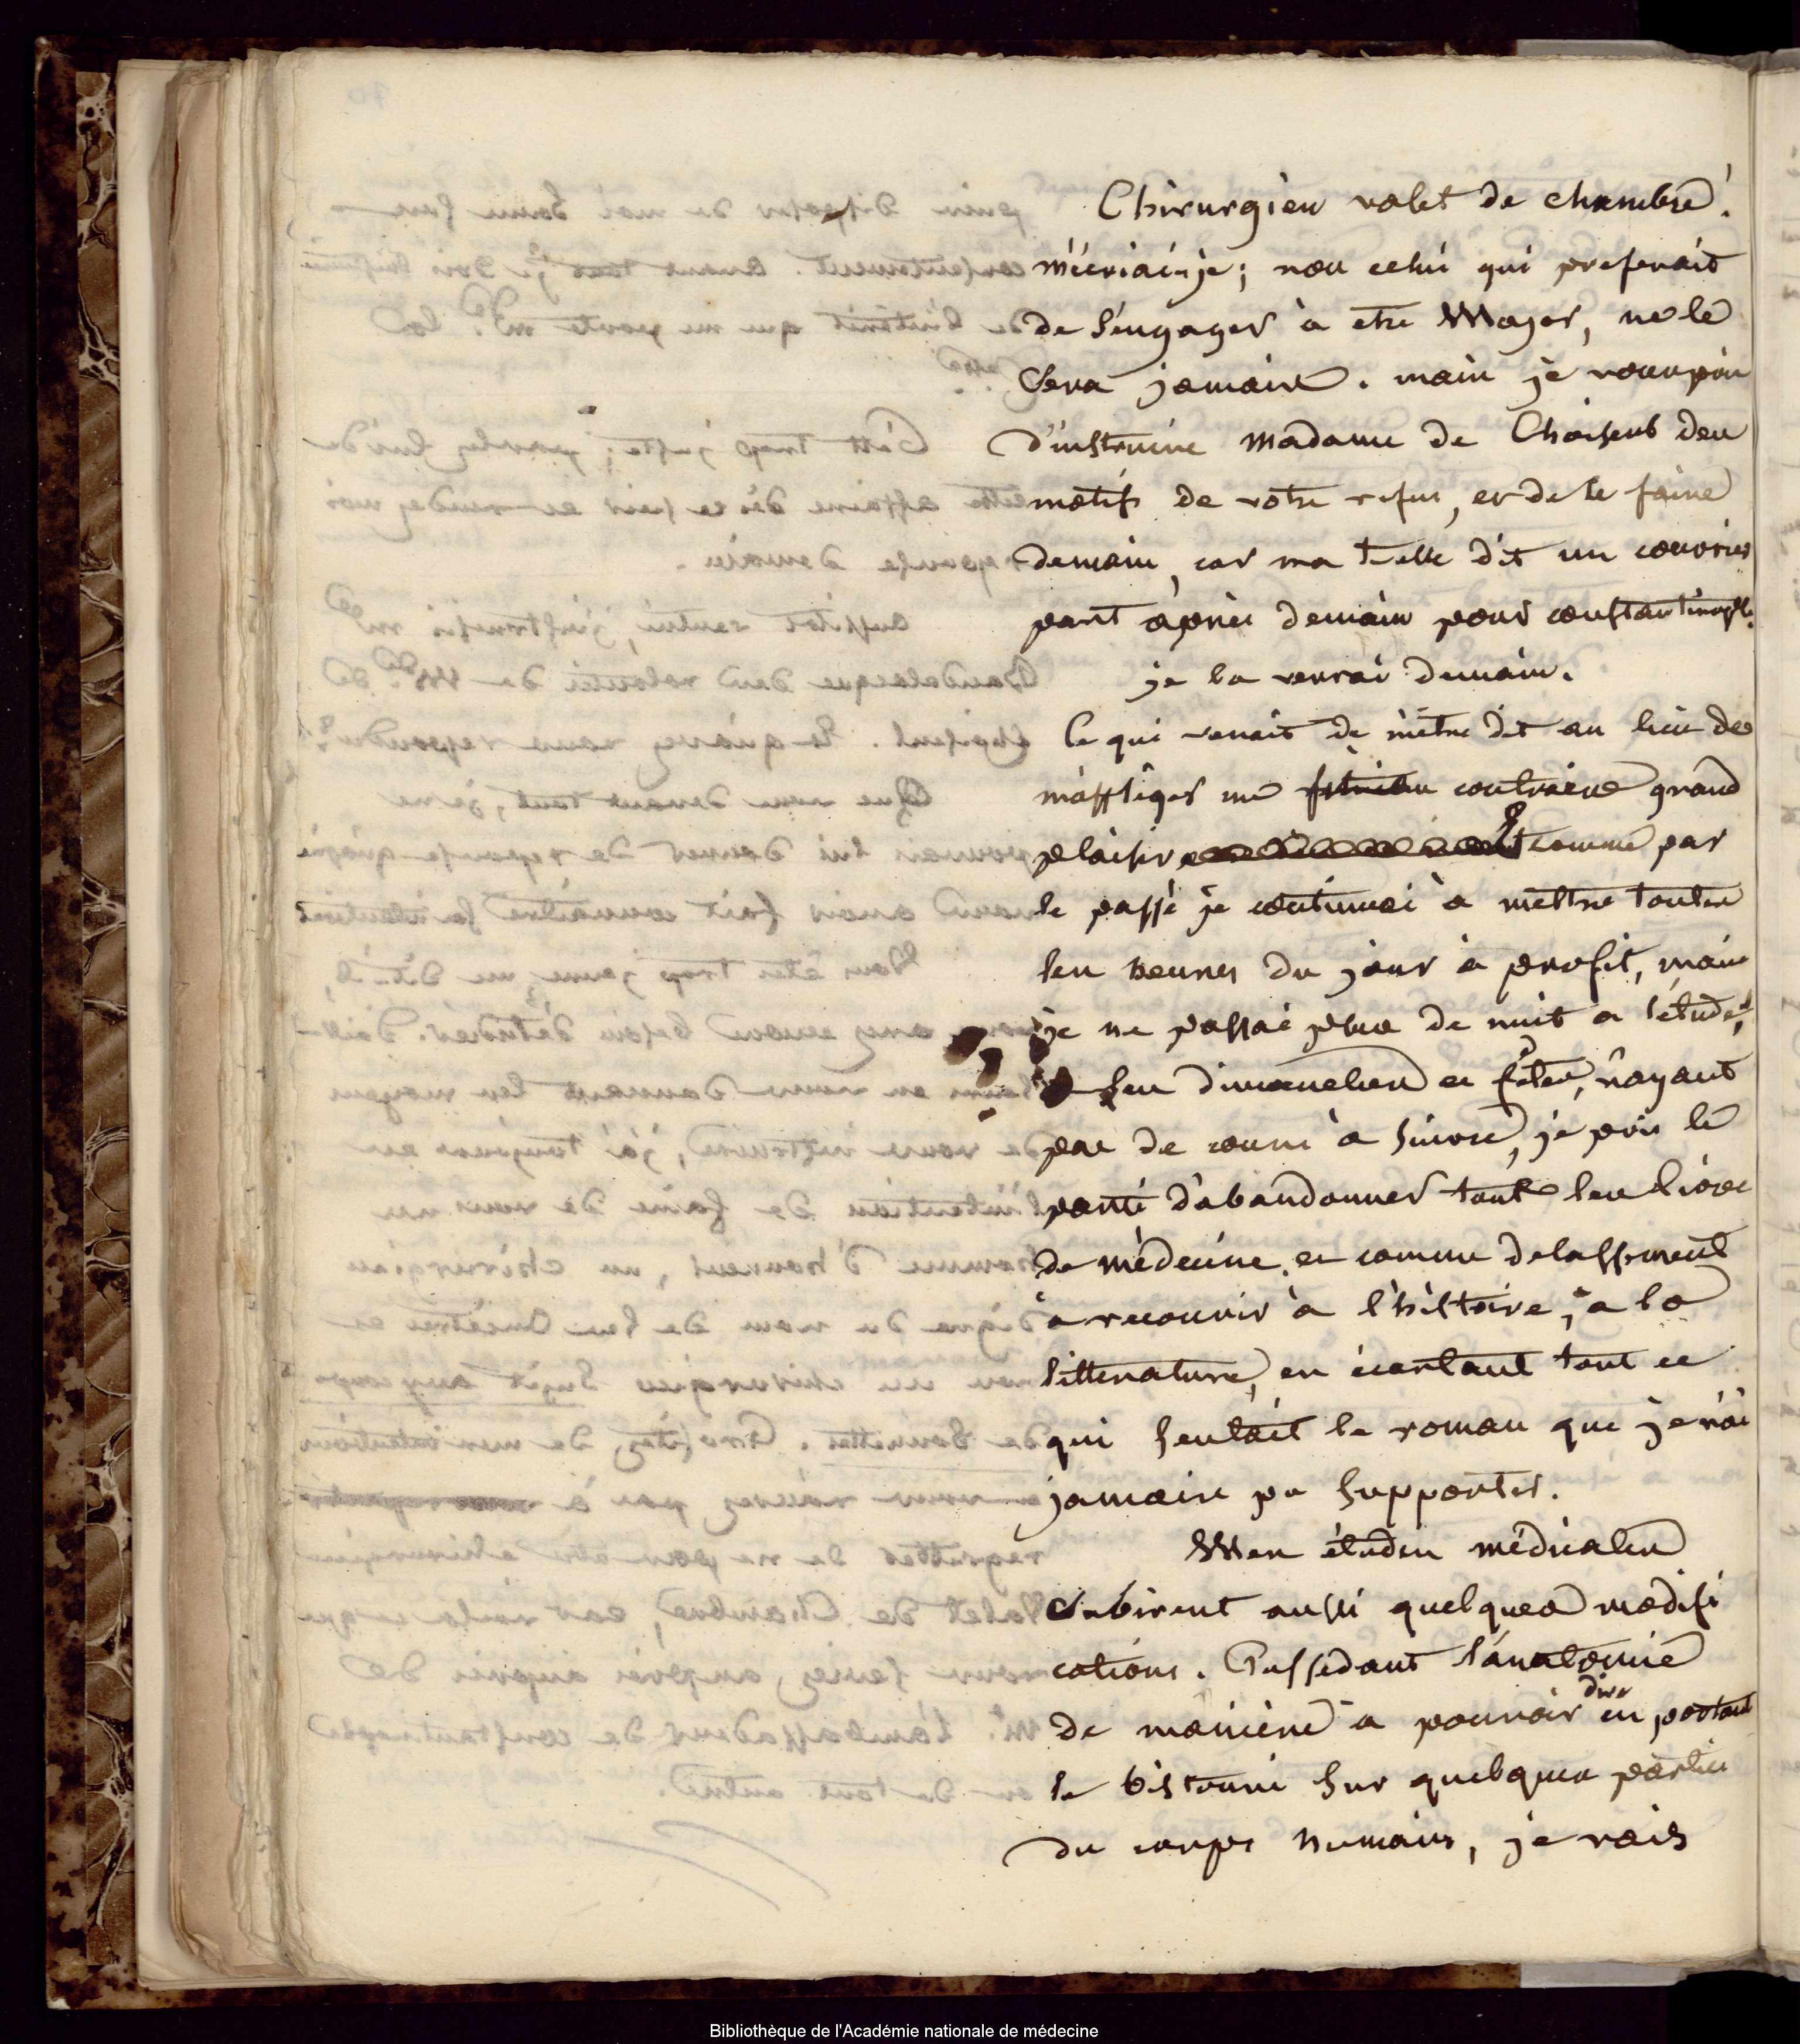 Chirurgien valet de chambre!
m'écriai-je; non celui qui preferait
de s'engager à etre Major, ne le
sera jamais. mais je vous prie
d'instruire Madame de Choiseul des
motifs de votre refus, et de le faire
demain, car ma t-elle dit un courier
part après demain pour constantinople.
je la verrai demain.
Ce qui venait de m'être dit au lieu de
m'affliger me contraire grand
plaisir et comme par
le passé je continuai à mettre toutes
les heures du jour à profit, mais
je ne passai plus de nuit a l'étude,
les dimanches et fêtes, n'ayant
pas de cours à suivre, je pris le
parti d'abandonner tout les livre
de médecine, et comme delassement
a recourir à l'histoire, a la
litterature, en écartant tout ce
qui sentait le roman que je n'ai
jamais pu supporter.
Mes études médicales
subirent aussi quelques modifi
cations. Possedant l'anatomie
de manière a pouvoir dire en portant
le bistouri sur quelques partie
du corps humain, je vais
Bibliothèque de l'Académie nationale de médecine